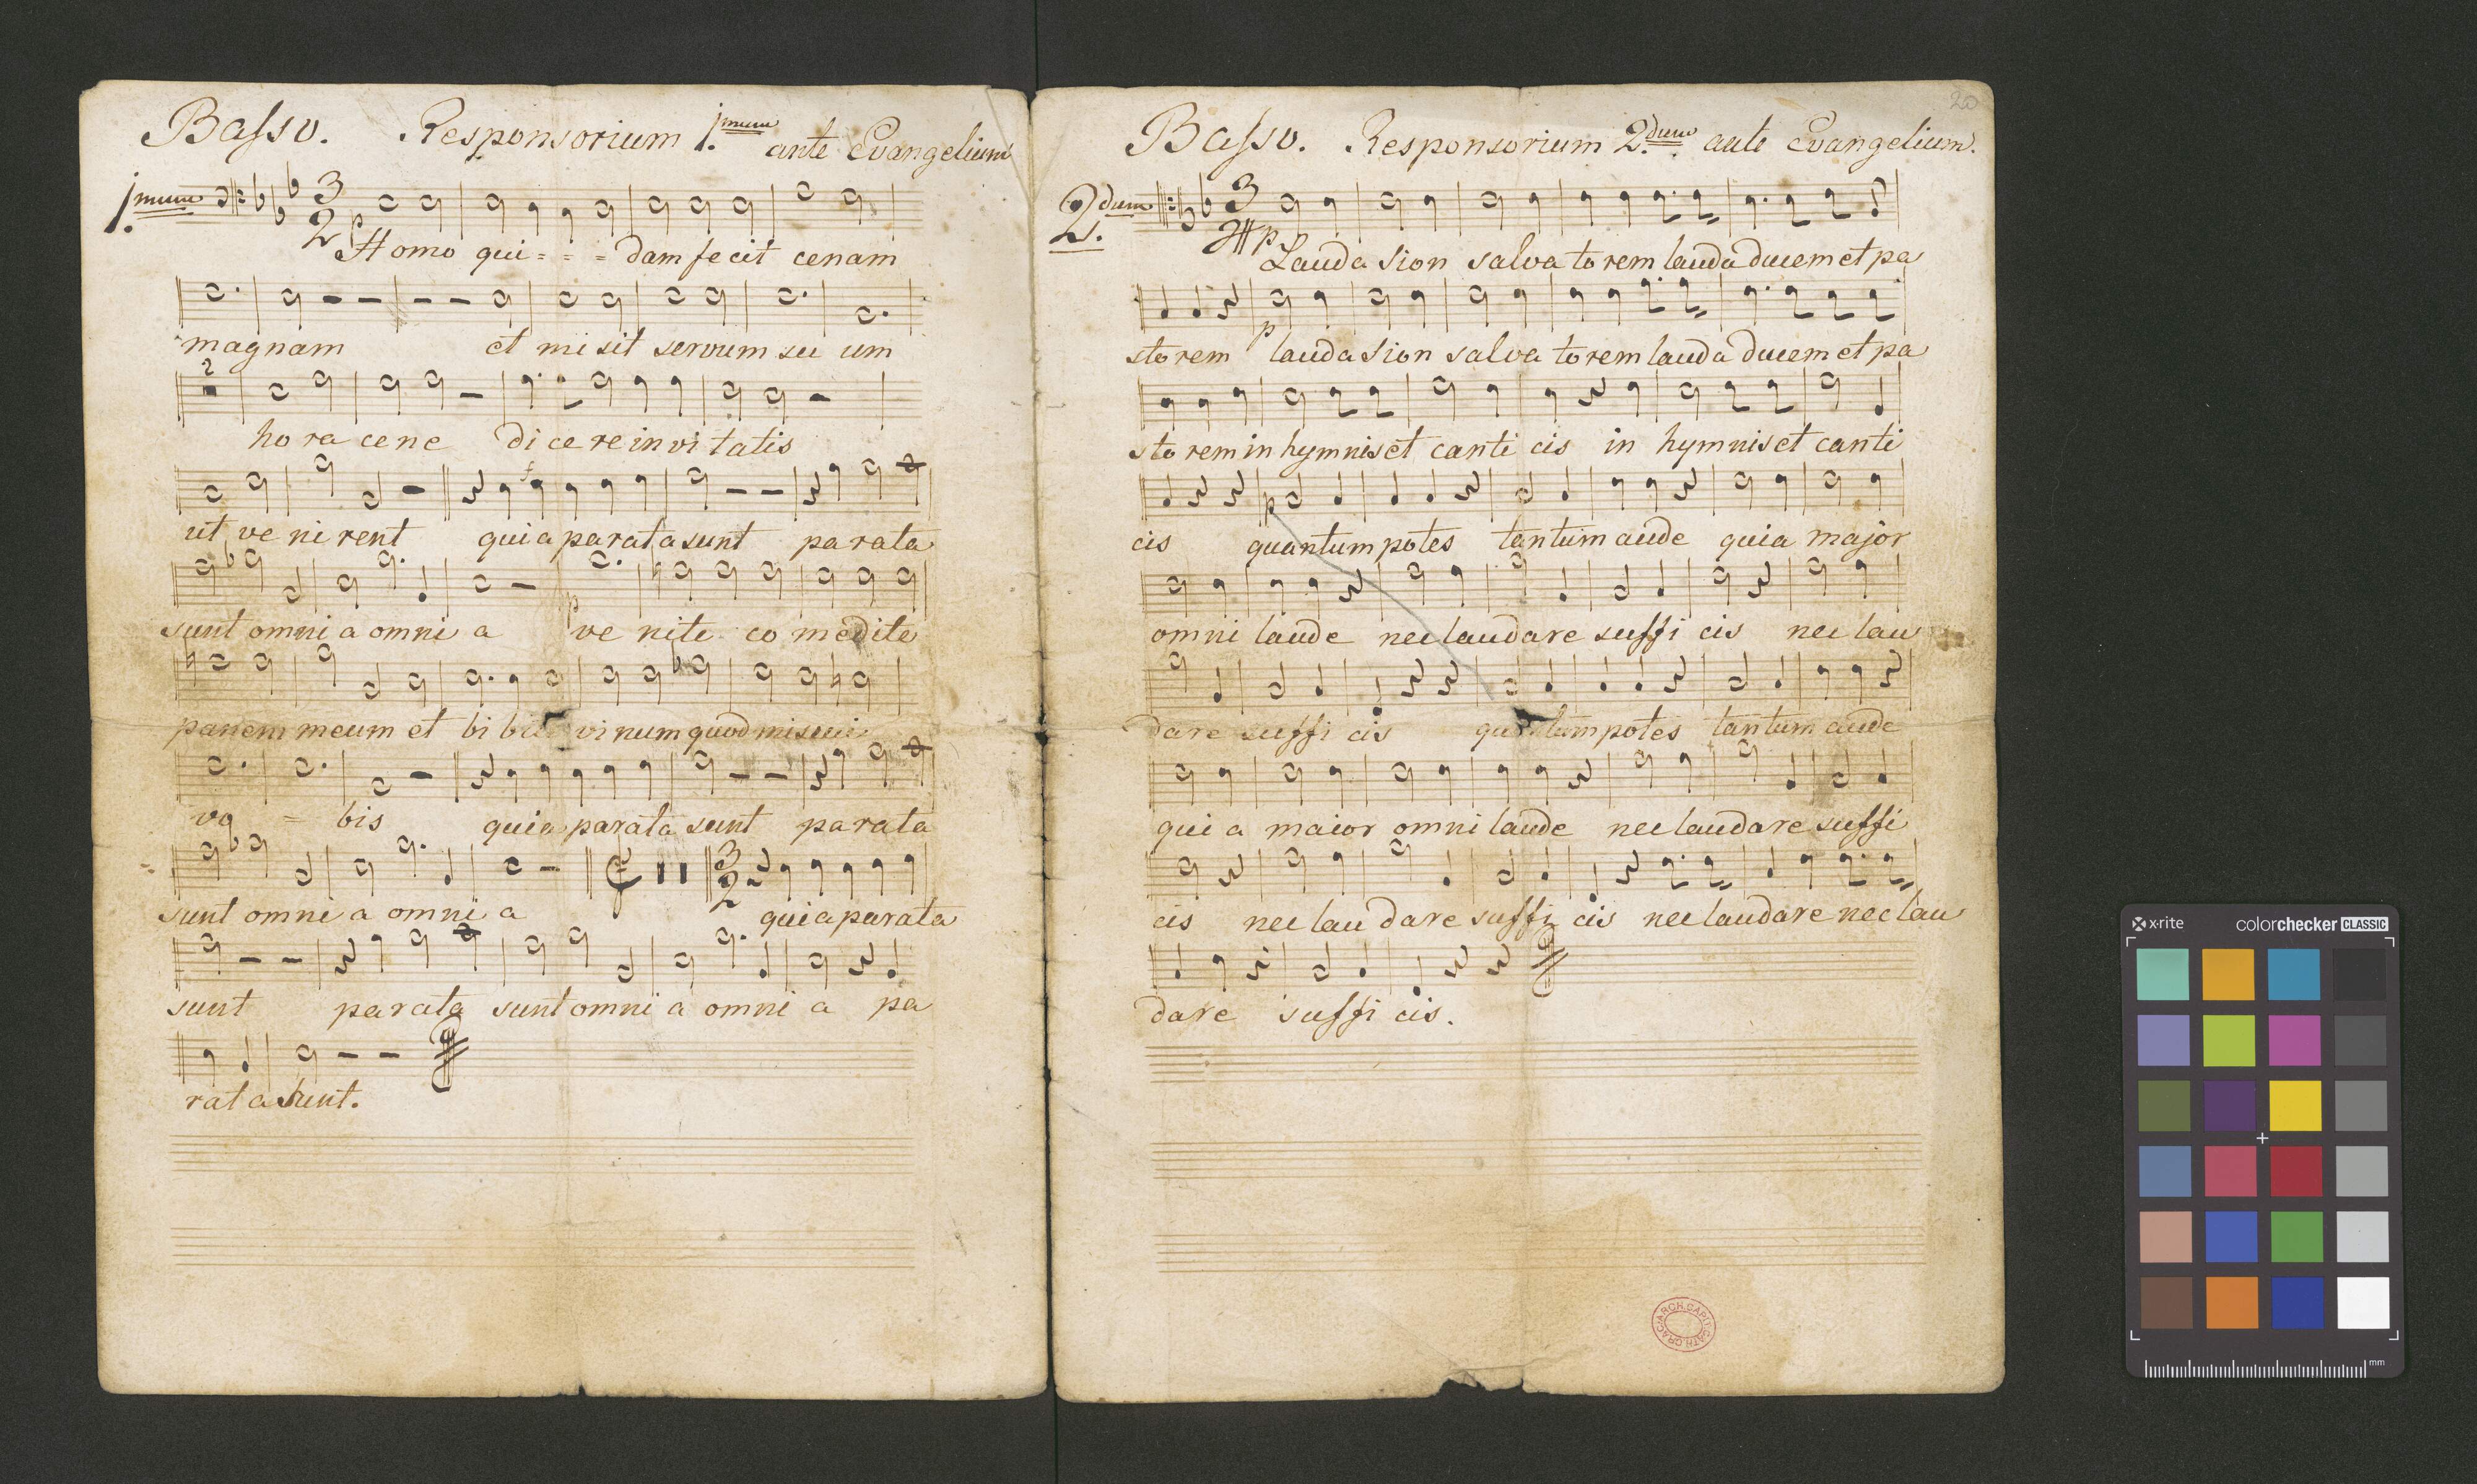 Basso. Responsorium 1.mum ante Evangelium
1.mum 3 2 p
Homo qui = = = dam fecit cenam
magnam et misit servum su um
2
ho ra ce ne di ce re in vi tatis
ut ve ni rent quia parata sunt parata
sunt omni a omni a ve nite co medite
p
panem meum et bi bite vi num quod miscui
vo = bis quia parata sunt parata
3 2
sunt omni a omni a quia parata
sunt parata sunt omni a omni a pa
rata sunt.
Basso. Responsorium 2.dum ante Evangelium.
20
2.dum 3 p
Lauda Sion salva to rem lauda ducem et pa
p
storem lauda Sion salva to rem lauda ducem et pa
sto rem in hymnis et canti cis in hymnis et canti
p
cis quantum potes tantum aude quia major
omni laude nec laudare suffi cis nec lau
dare suffi cis quantum potes tantum aude
qui a maior omni laude nec laudare suffi
cis nec lau dare suffi cis nec laudare nec lau
dare suffi cis.
ARCH. CAPIT. CATH. GRACIA
x-rite colorchecker CLASSIC
mm